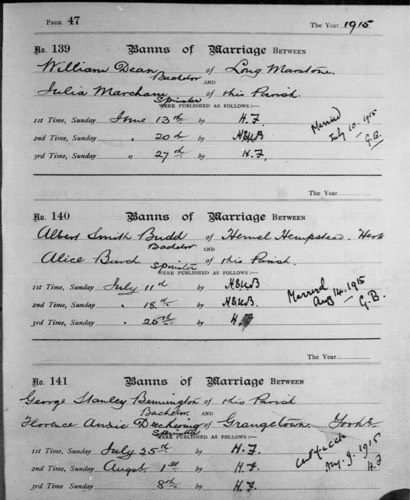 PAGE 47 The Year 1915
No. 139 Banns of Marriage BETWEEN
William Dean of Long Marston
Bachelor AND
Julia Marcham of this Parish
Spinster
WERE PUBLISHED AS FOLLOWS:—
1st Time, Sunday June 13th by H.F.
2nd Time, Sunday " 20th by
3rd Time, Sunday " 27th by H.F.
Married
July 10. 1915
— G.B.
The Year
No. 140 Banns of Marriage BETWEEN
Albert Smith Budd of Hemel Hempstead. Herts
Bachelor AND
Alice Burch of this Parish.
Spinster
WERE PUBLISHED AS FOLLOWS:—
1st Time, Sunday July 11th by
2nd Time, Sunday " 18th by
3rd Time, Sunday " 25th by
Married
Aug 14. 1915
— G.B.
The Year
No. 141 Banns of Marriage BETWEEN
George Stanley Bennington of this Parish
Bachelor AND
Florence Annie of Grangetown Yorks
Spinster
WERE PUBLISHED AS FOLLOWS:—
1st Time, Sunday July 25th by H.F.
2nd Time, Sunday Augst 1st by H.F.
3rd Time, Sunday 8th by H.F.
Aug. 9. 1915
H.F.